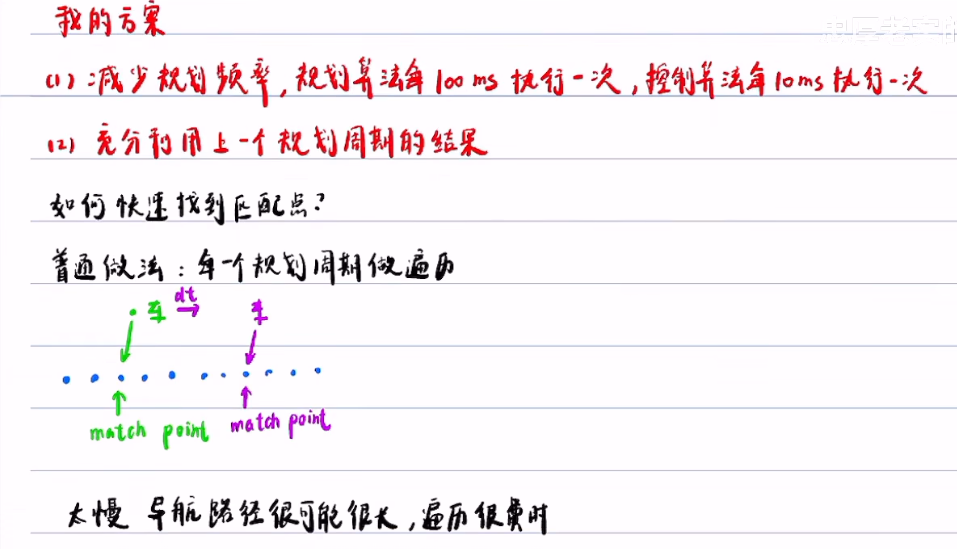 我的方案
(1) 减少规划频率,规划算法每100ms执行一次,控制算法每10ms执行一次
(2) 充分利用上一个规划周期的结果
如何快速找到匹配点?
普通做法:每一个规划周期做遍历
车 dt 车
match point match point
太慢 导航路径很可能很长,遍历很费时